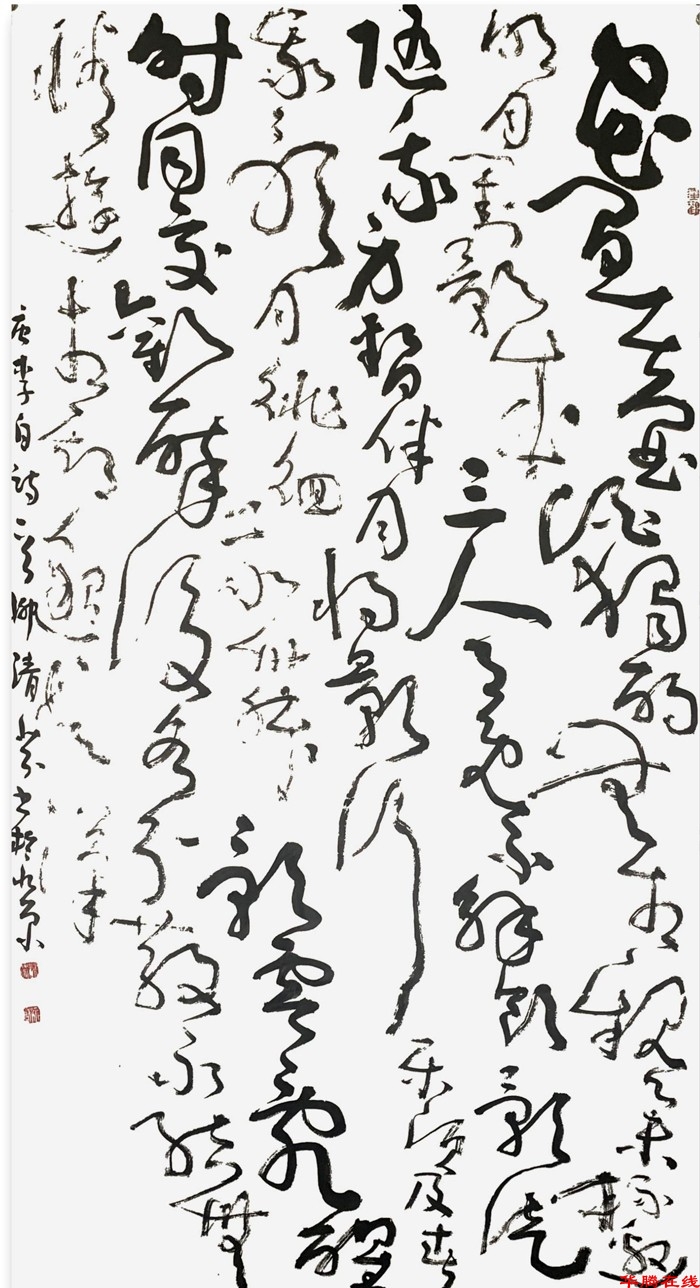 花間一壺酒獨酌無相親舉杯邀
明月對影成三人月既不解飲影徒
隨我身暫伴月將影行樂須及春
我歌月徘徊我舞影零亂醒
時同交歡醉後各分散永結無
情遊相期邈雲漢
唐李白詩一首 清 書於北京
华腾在线